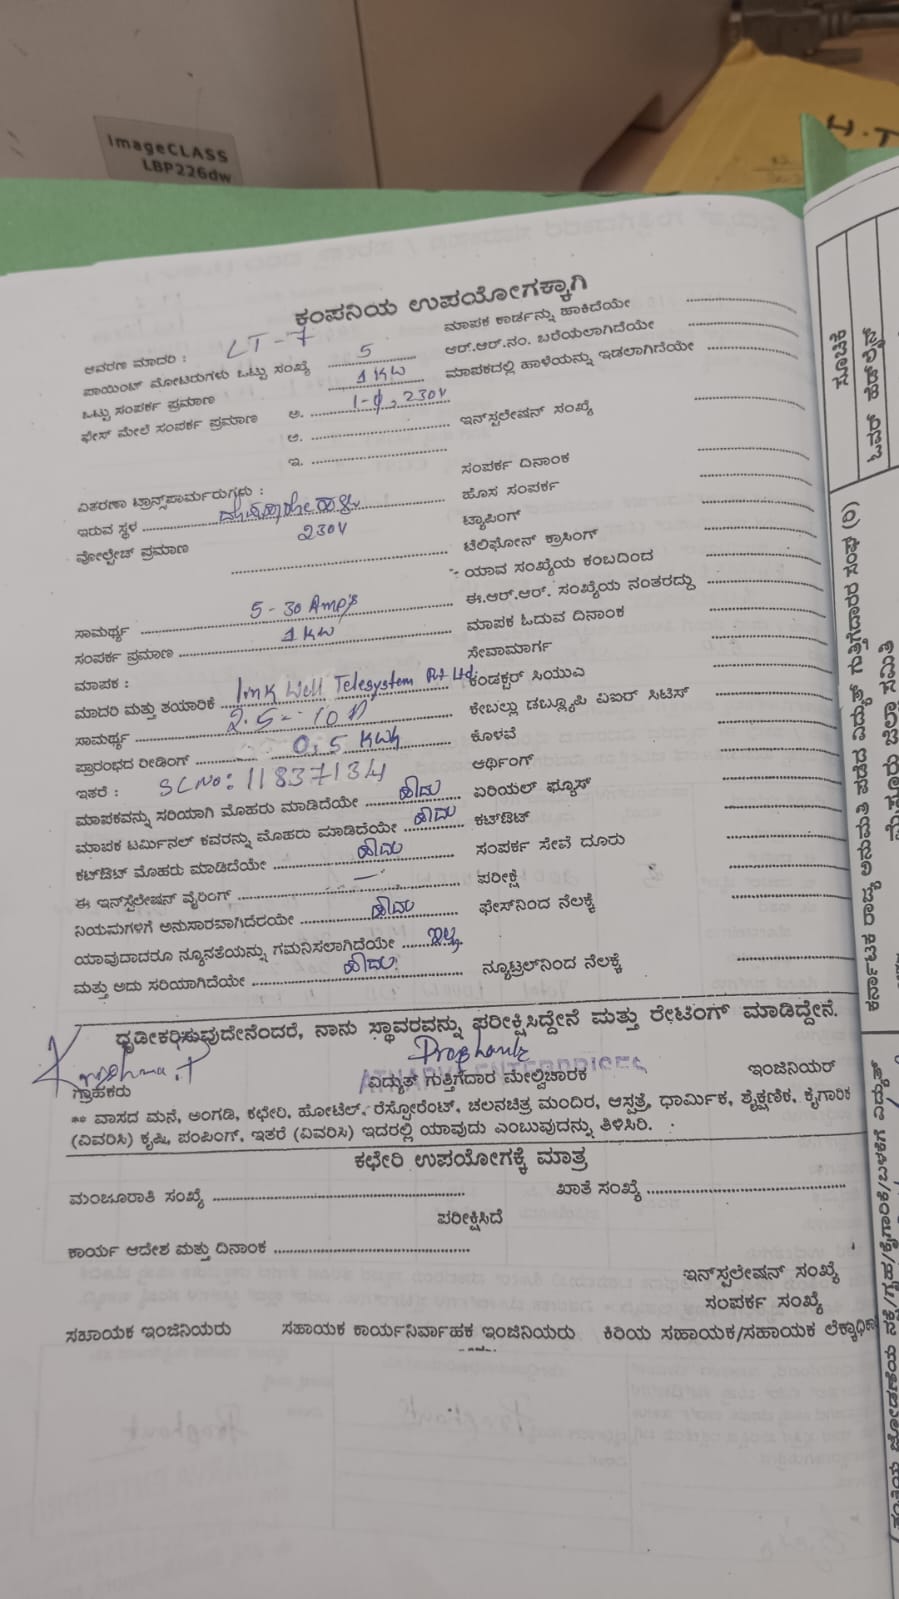 imageCLASS
LBP226dw
H.T
ಕಂಪನಿಯ ಉಪಯೋಗಕ್ಕಾಗಿ
ಆವರಣ ಮಾದರಿ : LT-7
ಪಾಯಿಂಟ್ ಮೋಟರುಗಳು ಒಟ್ಟು ಸಂಖ್ಯೆ 5
ಒಟ್ಟು ಸಂಪರ್ಕ ಪ್ರಮಾಣ 1 KW
ಫೇಸ್ ಮೇಲೆ ಸಂಪರ್ಕ ಪ್ರಮಾಣ ಅ. 1-φ, 230V
ಆ.
ಇ.
ವಿತರಣಾ ಟ್ರಾನ್ಸ್‌ಪಾರ್ಮರುಗಳು :
ಇರುವ ಸ್ಥಳ
ವೋಲ್ಟೇಜ್ ಪ್ರಮಾಣ 230V
ಸಾಮರ್ಥ್ಯ 5-30 Amp's
ಸಂಪರ್ಕ ಪ್ರಮಾಣ 1 KW
ಮಾಪಕ :
ಮಾದರಿ ಮತ್ತು ತಯಾರಿಕೆ Link Well Telesystem Pvt Ltd.
ಸಾಮರ್ಥ್ಯ 2.5-10A
ಪ್ರಾರಂಭದ ರೀಡಿಂಗ್ 0.5 KWh
ಇತರೆ : SL No: 11837134
ಮಾಪಕವನ್ನು ಸರಿಯಾಗಿ ಮೊಹರು ಮಾಡಿದೆಯೇ ಹೌದು
ಮಾಪಕ ಟರ್ಮಿನಲ್ ಕವರನ್ನು ಮೊಹರು ಮಾಡಿದೆಯೇ ಹೌದು
ಕಟ್‌ಔಟ್ ಮೊಹರು ಮಾಡಿದೆಯೇ ಹೌದು
ಈ ಇನ್‌ಸ್ಟಲೇಷನ್ ವೈರಿಂಗ್ —
ನಿಯಮಗಳಿಗೆ ಅನುಸಾರವಾಗಿದೆರಯೇ ಹೌದು
ಯಾವುದಾದರೂ ನ್ಯೂನತೆಯನ್ನು ಗಮನಿಸಲಾಗಿದೆಯೇ ಇಲ್ಲ
ಮತ್ತು ಅದು ಸರಿಯಾಗಿದೆಯೇ ಹೌದು
ಮಾಪಕ ಕಾರ್ಡನ್ನು ಹಾಕಿದೆಯೇ
ಆರ್.ಆರ್.ನಂ. ಬರೆಯಲಾಗಿದೆಯೇ
ಮಾಪಕದಲ್ಲಿ ಹಾಳೆಯನ್ನು ಇಡಲಾಗಿದೆಯೇ
ಇನ್‌ಸ್ಟಲೇಷನ್ ಸಂಖ್ಯೆ
ಸಂಪರ್ಕ ದಿನಾಂಕ
ಹೊಸ ಸಂಪರ್ಕ
ಟ್ಯಾಪಿಂಗ್
ಟೆಲಿಫೋನ್ ಕ್ರಾಸಿಂಗ್
ಯಾವ ಸಂಖ್ಯೆಯ ಕಂಬದಿಂದ
ಈ.ಆರ್.ಆರ್. ಸಂಖ್ಯೆಯ ನಂತರದ್ದು
ಮಾಪಕ ಓದುವ ದಿನಾಂಕ
ಸೇವಾಮಾರ್ಗ
ಕಂಡಕ್ಟರ್ ಸಿಯುಎ
ಕೇಬಲ್ಲು ಡಬ್ಲ್ಯೂಪಿ ವಿಐಆರ್ ಸಿಟಿಸ್
ಕೊಳವೆ
ಆರ್ಥಿಂಗ್
ಏರಿಯಲ್ ಫ್ಯೂಸ್
ಕಟ್‌ಔಟ್
ಸಂಪರ್ಕ ಸೇವೆ ದೂರು
ಪರೀಕ್ಷೆ
ಫೇಸ್‌ನಿಂದ ನೆಲಕ್ಕೆ
ನ್ಯೂಟ್ರಲ್‌ನಿಂದ ನೆಲಕ್ಕೆ
ಧೃಡೀಕರಿಸುವುದೇನೆಂದರೆ, ನಾನು ಸ್ಥಾವರವನ್ನು ಪರೀಕ್ಷಿಸಿದ್ದೇನೆ ಮತ್ತು ರೇಟಿಂಗ್ ಮಾಡಿದ್ದೇನೆ.
Karishma.P
Prashanth
ATHARVA ENTERPRISES
ಗ್ರಾಹಕರು ವಿದ್ಯುತ್ ಗುತ್ತಿಗೆದಾರ ಮೇಲ್ವಿಚಾರಕ ಇಂಜಿನಿಯರ್
** ವಾಸದ ಮನೆ, ಅಂಗಡಿ, ಕಛೇರಿ, ಹೋಟೆಲ್, ರೆಸ್ಟೋರೆಂಟ್, ಚಲನಚಿತ್ರ ಮಂದಿರ, ಆಸ್ಪತ್ರೆ, ಧಾರ್ಮಿಕ, ಶೈಕ್ಷಣಿಕ, ಕೈಗಾರಿಕ
(ವಿವರಿಸಿ) ಕೃಷಿ, ಪಂಪಿಂಗ್, ಇತರೆ (ವಿವರಿಸಿ) ಇದರಲ್ಲಿ ಯಾವುದು ಎಂಬುವುದನ್ನು ತಿಳಿಸಿರಿ.
ಕಛೇರಿ ಉಪಯೋಗಕ್ಕೆ ಮಾತ್ರ
ಮಂಜೂರಾತಿ ಸಂಖ್ಯೆ ಖಾತೆ ಸಂಖ್ಯೆ
ಪರೀಕ್ಷಿಸಿದೆ
ಕಾರ್ಯ ಆದೇಶ ಮತ್ತು ದಿನಾಂಕ
ಇನ್‌ಸ್ಪಲೇಷನ್ ಸಂಖ್ಯೆ
ಸಂಪರ್ಕ ಸಂಖ್ಯೆ
ಸಹಾಯಕ ಇಂಜಿನಿಯರು ಸಹಾಯಕ ಕಾರ್ಯನಿರ್ವಾಹಕ ಇಂಜಿನಿಯರು ಕಿರಿಯ ಸಹಾಯಕ/ಸಹಾಯಕ
ಸೂಚಿಕೆ
ಓವರ್ ಹೆಡ್‌ಲೈನ್
ಕರ್ನಾಟಕ ರಾಜ್ಯ ಅನುಮತಿ ಪಡೆದ ವಿದ್ಯುತ್ ಗುತ್ತಿಗೆದಾರರ ಸಂಘ (ರಿ)
ಮೈಸೂರು ಜಿಲ್ಲಾ ಸಮಿತಿ